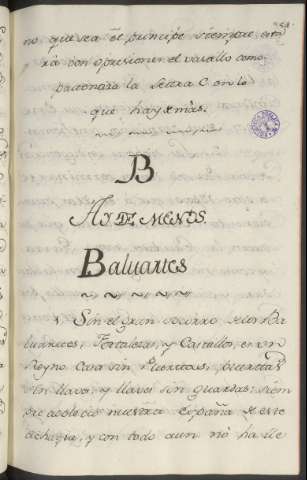 no que sea el principe siempre esta
rà con oposicion el vasallo como
la Letra C. en lo
que hay mas.
B
AY DE MENOS.
Baluartes
Sin el gran socorro de los Ba
luartes, Fortalezas, y Castillos, es un
Reyno Casa sin Puertas, puertas
sin llaves, y llaves sin guardas: siem
pre adolecio nuestra España de este
achaque, y con todo aun no ha de